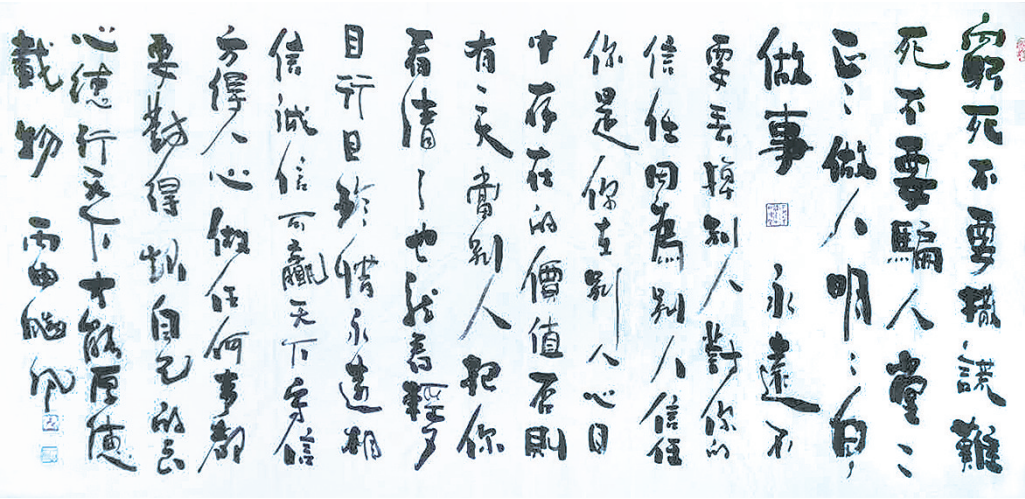 窮死不要撒謊難
死不要騙人堂〻
正〻做人明〻白〻
做事 永遠不
要丟掉别人對你的
信任因為别人信任
你是你在别人心目
中存在的價值否則
有一天當别人把你
看清了也就看輕了
且行且珍惜永遠相
信誠信可贏天下守信
方得人心做任何事都
要對得起自己的良
心德行天下才能厚德
載物 丙申